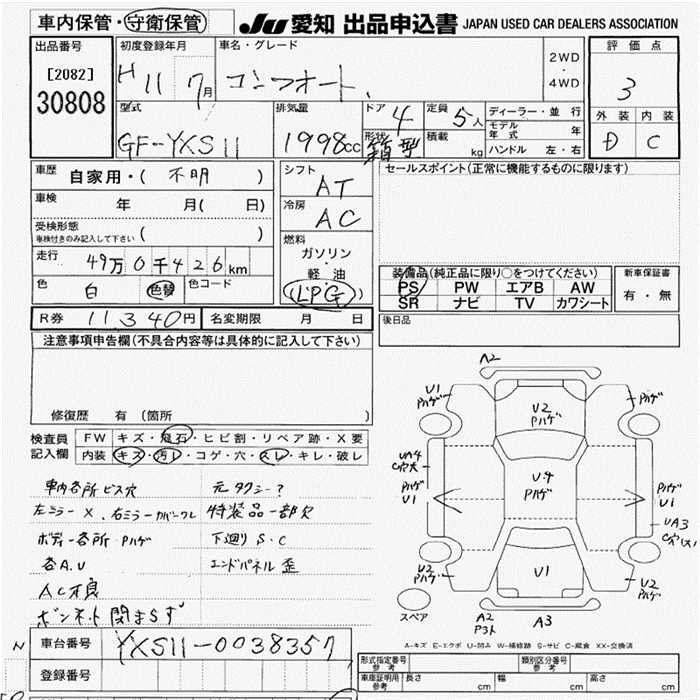 車内保管・守衛保管 JU 愛知 出品申込書 JAPAN USED CAR DEALERS ASSOCIATION
出品番号 初度登録年月 車名・グレード 2WD・4WD 評価点
[2082] H 11 7月 コンフォート 3
30808
型式 排気量 ドア 4 定員 5人 ディーラー・並行 外装 内装
GF-YXS11 1998cc 形状 箱型 積載 kg モデル年式 年 D C
ハンドル 左・右
車歴 自家用・( 不明 ) シフト AT セールスポイント(正常に機能するものに限ります)
車検 年 月( 日) 冷房 AC
受検形態
車検付きのみ記入して下さい ( )
燃料
走行 49万0千426km ガソリン
軽油
LPG
色 白 色替 色コード
装備品(純正品に限り○をつけてください) 新車保証書
PS PW エアB AW 有・無
SR ナビ TV カワシート
R券 11,340円 名変期限 月 日 後日品
注意事項申告欄(不具合内容等は具体的に記入して下さい)
修復歴 有(箇所 )
検査員 FW キズ・飛石・ヒビ割・リペア跡・X要
記入欄 内装 キズ・汚レ・コゲ・穴・スレ・キレ・破レ
車内各所ビス穴 元タクシー?
左ミラーX、右ミラーカバーワレ 特装品一部欠
ボデー各所Pハゲ 下廻りS・C
各A.U エンドパネル歪
AC不良
ボンネット閉まらず
A2
U1 Pハゲ
U2 Pハゲ
Pハゲ
UA4
Pハゲ U1
U4 Pハゲ
Pハゲ U1
UA3
U2 Pハゲ
U1
U2 Pハゲ
スペア
A2
A3
A-キズ E-エクボ U-凹ミ W-補修跡 S-サビ C-腐食 XX-交換済
車台番号 YXS11-0038357
登録番号
形式指定番号 参考 類別区分番号 参考
車庫証明用 参考 長さ cm 幅 cm 高さ cm